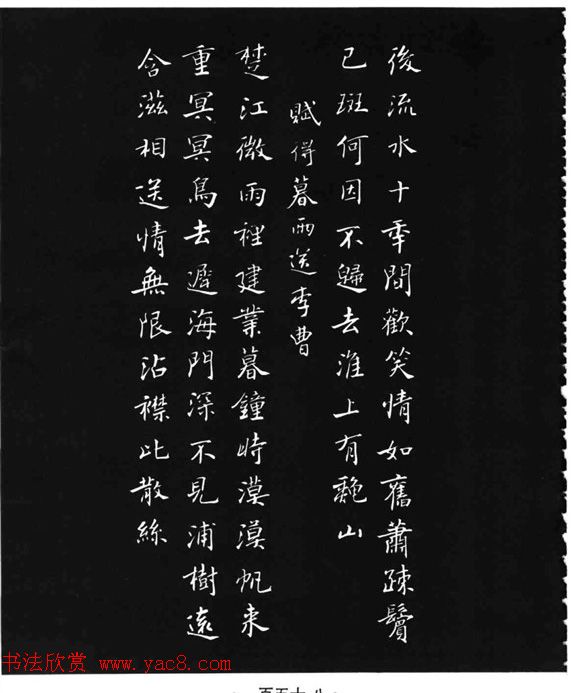 後流水十年間歡笑情如舊蕭疎鬢
已斑何因不歸去淮上有秋山
賦得暮雨送李曹
楚江微雨裡建業暮鐘時漠漠帆来
重冥冥鳥去遲海門深不見浦樹遠
含滋相送情無限沾襟比散絲
书法欣赏 www.yac8.com